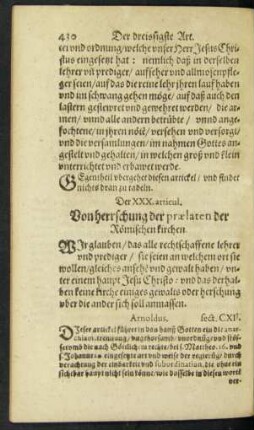 430 Der dreissigste Art.
tei vnd ordnung/ welche vnser Herr Jesus Chri-
stus eingesetzt hat: nemlich daß in derselben
lehrer vñ prediger/ auffseher vnd allmosenpfle-
ger seien/ auf das die reine lehr jhren lauf haben
vnd im schwang gehen möge/ auf daß auch den
lastern gesteuret vnd gewehret werden/ die ar-
men/ vnnd alle andern betrübte/ vnnd ange-
fochtene/ in jhren nötē/ versehen vnd versorgt/
vnd die versamlungen/ im nahmen Gottes an-
gestellt vnd gehalten/ in welchen groß vnd klein
vnterrichtet vnd erbawet werde.
GEgentheil vbergehet diesen artickel/ vnd findet
nichts dran zu tadeln.
Der XXX. articul.
Von herrschung der prælaten der
Römischen kirchen.
WIr glauben/ das alle rechtschaffene lehrer
vnd prediger/ sie seien an welchem ort sie
wollen/ gleiches ansehē vnd gewalt haben/ vn-
ter einem haupt Jesu Christo: vnd das derhal-
ben keine kirche einiges gewalts oder herschung
vber die ander sich soll anmassen.
Arnoldus. sect. CXI.
DIeser artickel führet in den hauß Gottes ein die anar-
chiam, trennung/ vngehorsamb/ vnordnung vnd
nach Göttlich. in rechte/ bei S. Matthæ. 16. vnd
S. Johann. eingesetzte art vnd weise der regierūg/ durch
verachtung der einbarkeit vnd subordination, die ohne ein
sichtbar haupt nicht sein könne/ wie dasselbe in diesen worten
ver-